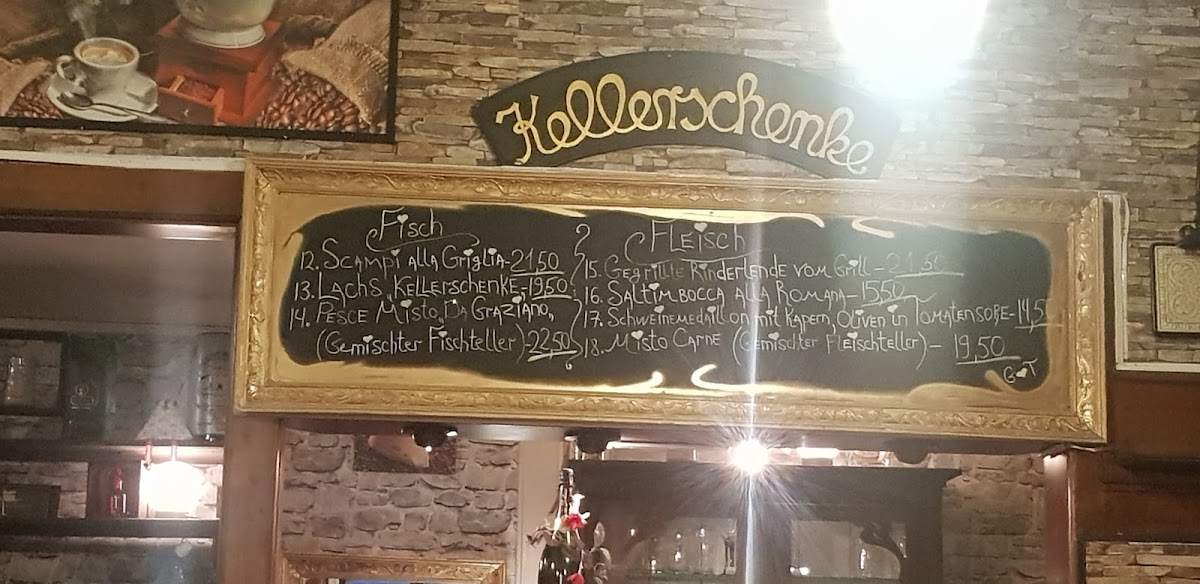 Kellerschenke
Fisch
12. Scampi alla Griglia - 21,50
13. Lachs „Kellerschenke - 19,50
14. Pesce Misto „Da Graziano„
(Gemischter Fischteller) - 22,50
Fleisch
15. Gegrillte Rinderlende vom Grill - 21,50
16. Saltimbocca alla Romana - 15,50
17. Schweinemedaillon mit Kapern, Oliven in Tomatensoße - 14,5
18. Misto Carne (Gemischter Fleischteller) - 19,50